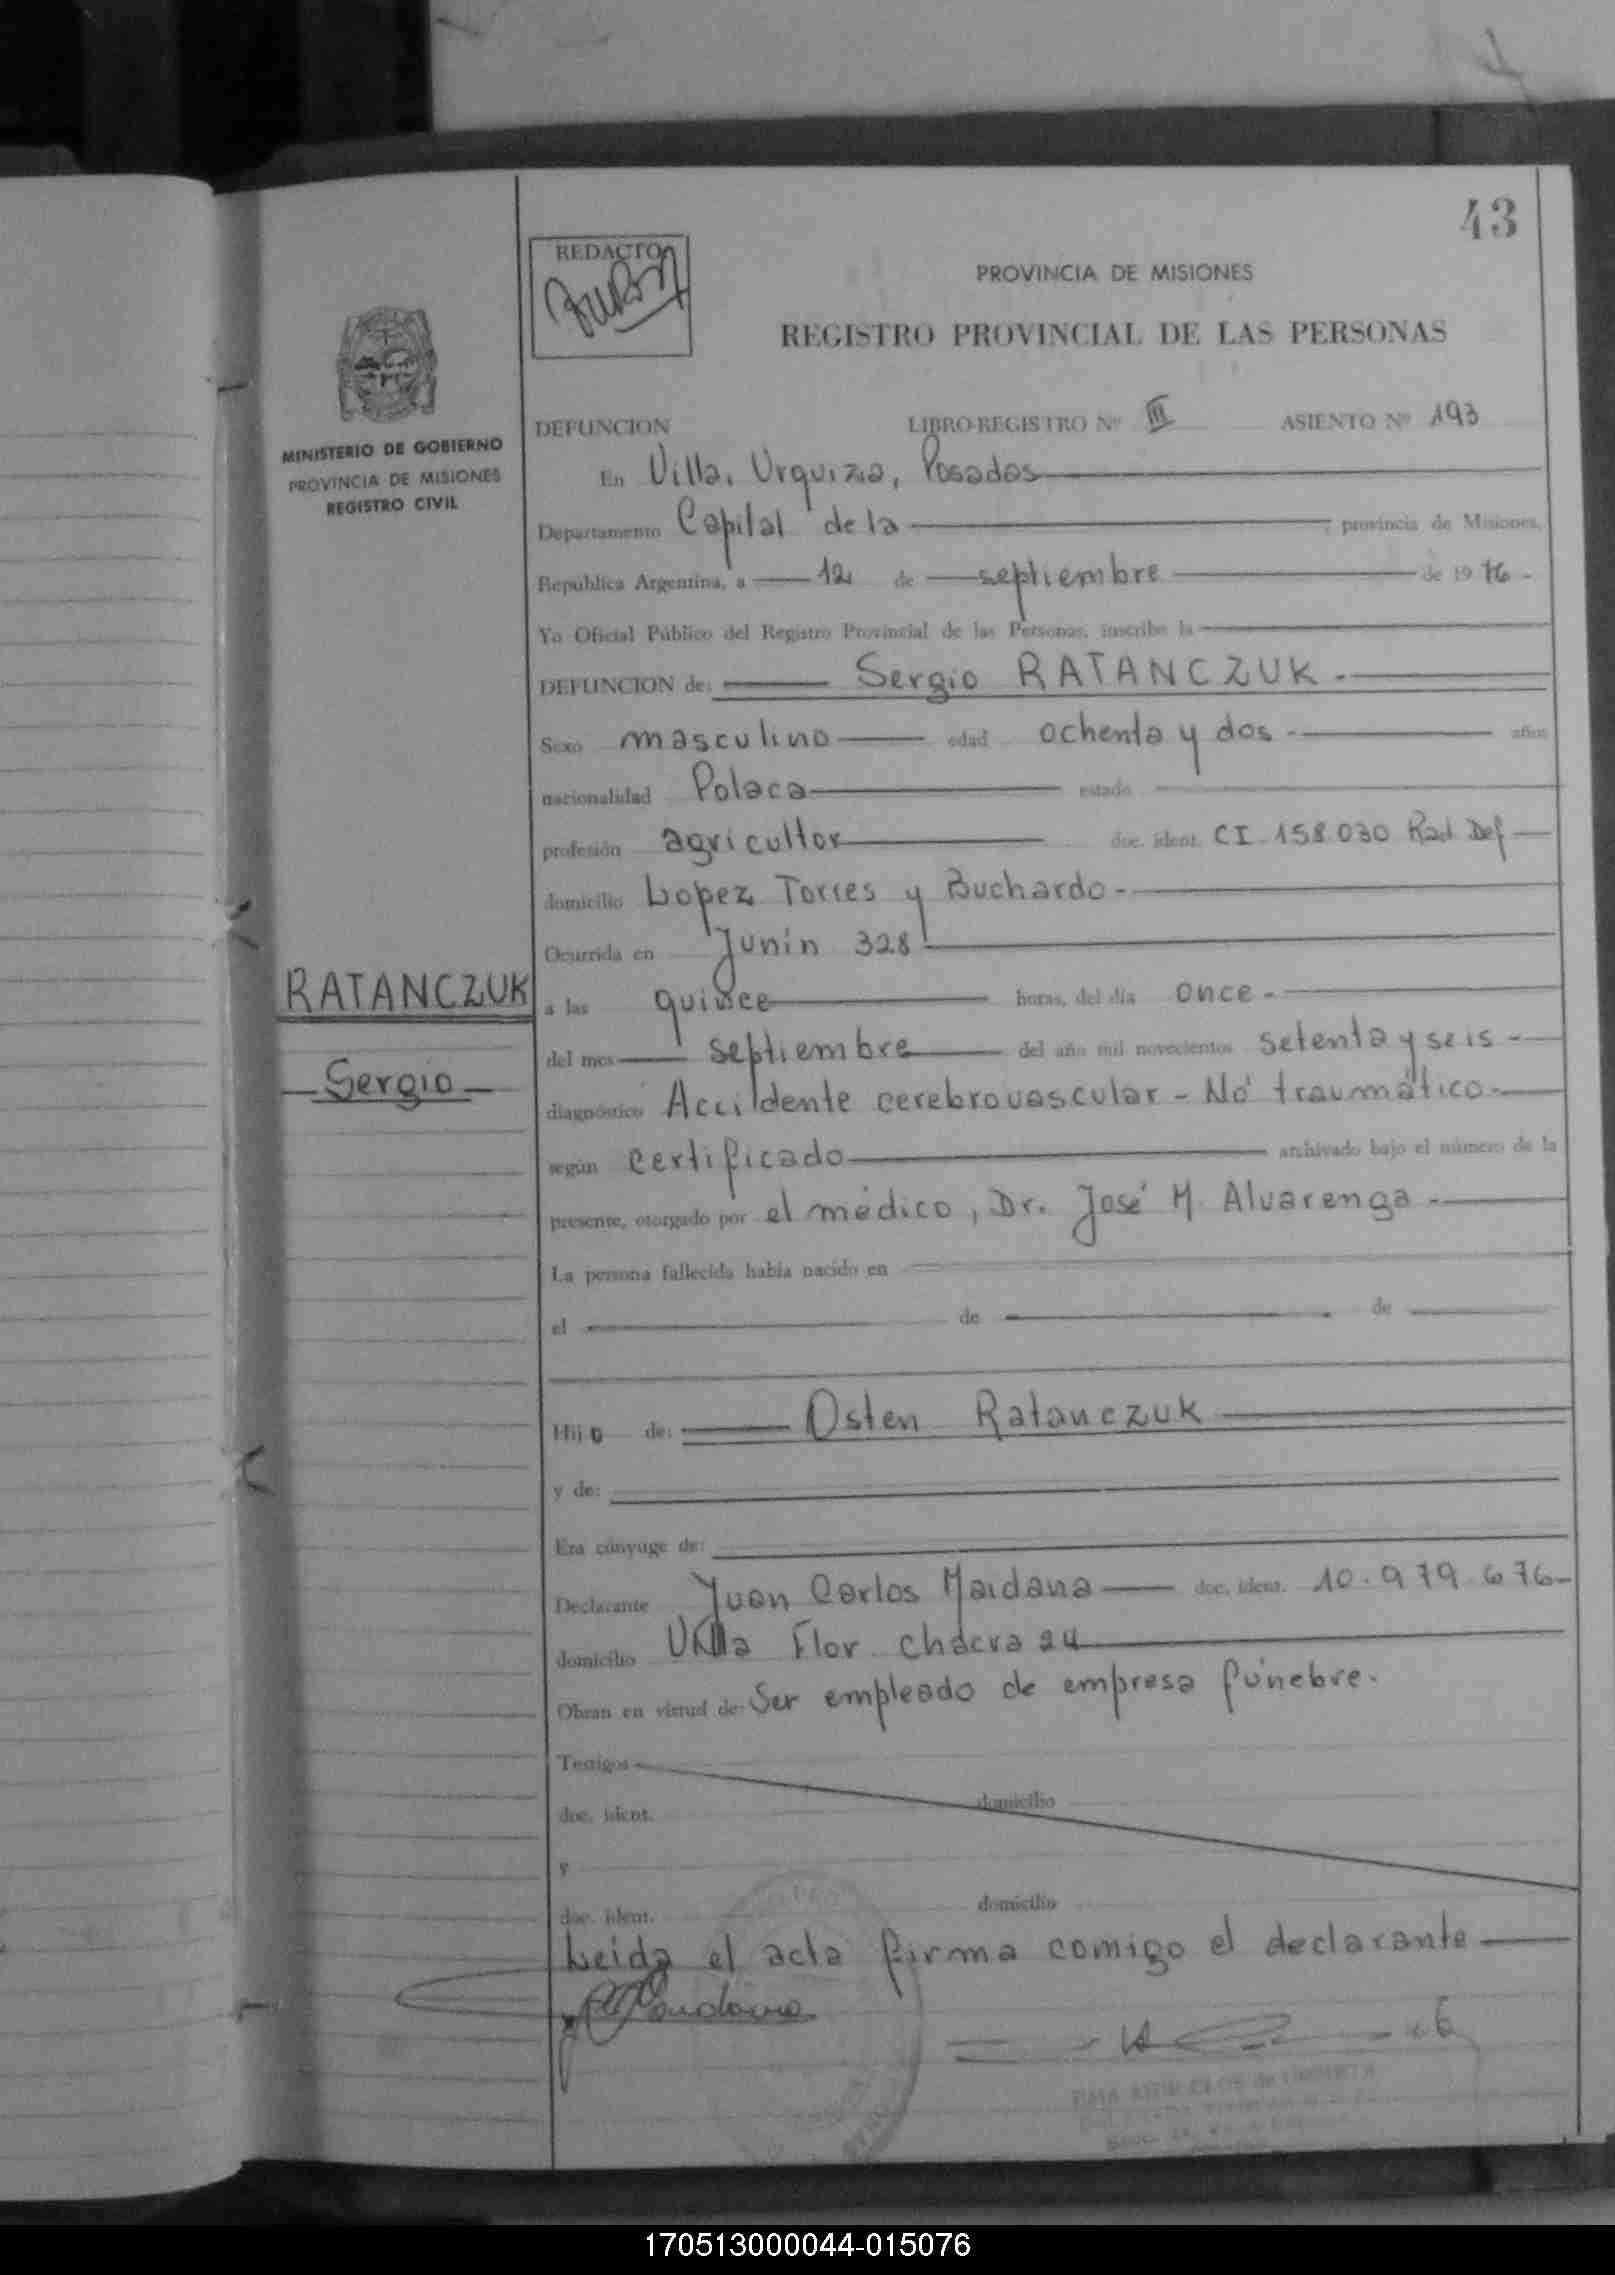 43
REDACTOR
PROVINCIA DE MISIONES
REGISTRO PROVINCIAL DE LAS PERSONAS
MINISTERIO DE GOBIERNO
PROVINCIA DE MISIONES
REGISTRO CIVIL
DEFUNCION LIBRO-REGISTRO Nº III ASIENTO Nº 193
En Villa Urquiza, Posadas
Departamento Capital de la provincia de Misiones,
República Argentina, a 12 de septiembre de 1976-
Yo Oficial Público del Registro Provincial de las Personas, inscribo la
DEFUNCION de: Sergio RATANCZUK.-
Sexo masculino edad ochenta y dos - años
nacionalidad Polaca estado
profesión agricultor doc. ident. CI-158.030 Rad. Def
domicilio Lopez Torres y Buchardo-
Ocurrida en Junín 328
RATANCZUK
Sergio
a las quince horas, del día once-
del mes septiembre del año mil novecientos setenta y seis -
diagnóstico Accidente cerebrovascular - No traumático-
según certificado archivado bajo el número de la
presente, otorgado por el médico, Dr. José M. Alvarenga -
La persona fallecida había nacido en
el de de
Hijo de: Osten Ratanczuk
y de:
Era cónyuge de:
Declarante Juan Carlos Maidana doc. ident. 10.979.676-
domicilio Villa Flor chacra 24
Obran en virtud de: Ser empleado de empresa fúnebre.
Testigos
doc. ident. domicilio
y
doc. ident. domicilio
Leida el acta firma comigo el declarante
170513000044-015076